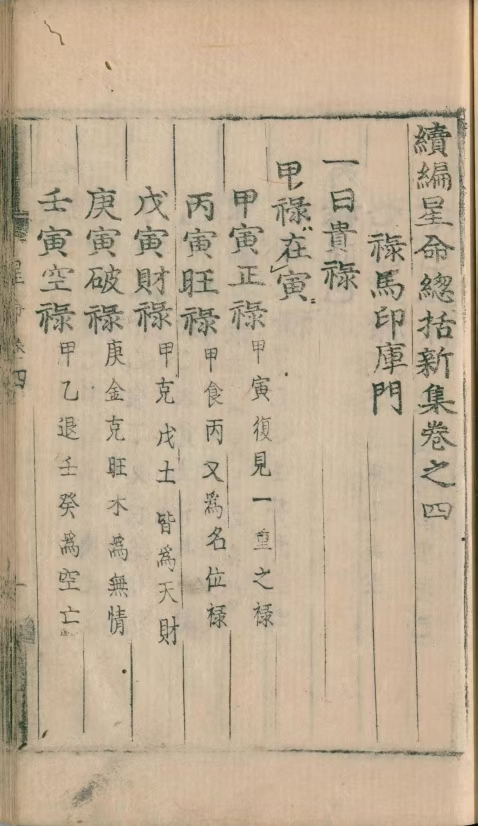 續編星命總括新集卷之四
祿馬印庫門
一曰貴祿
甲祿在寅
甲寅正祿 甲寅復見一重之祿
丙寅旺祿 甲食丙又為名位祿
戊寅財祿 甲克戊土皆為天財
庚寅破祿 庚金克旺木為無情
壬寅空祿 甲乙退壬癸為空亡